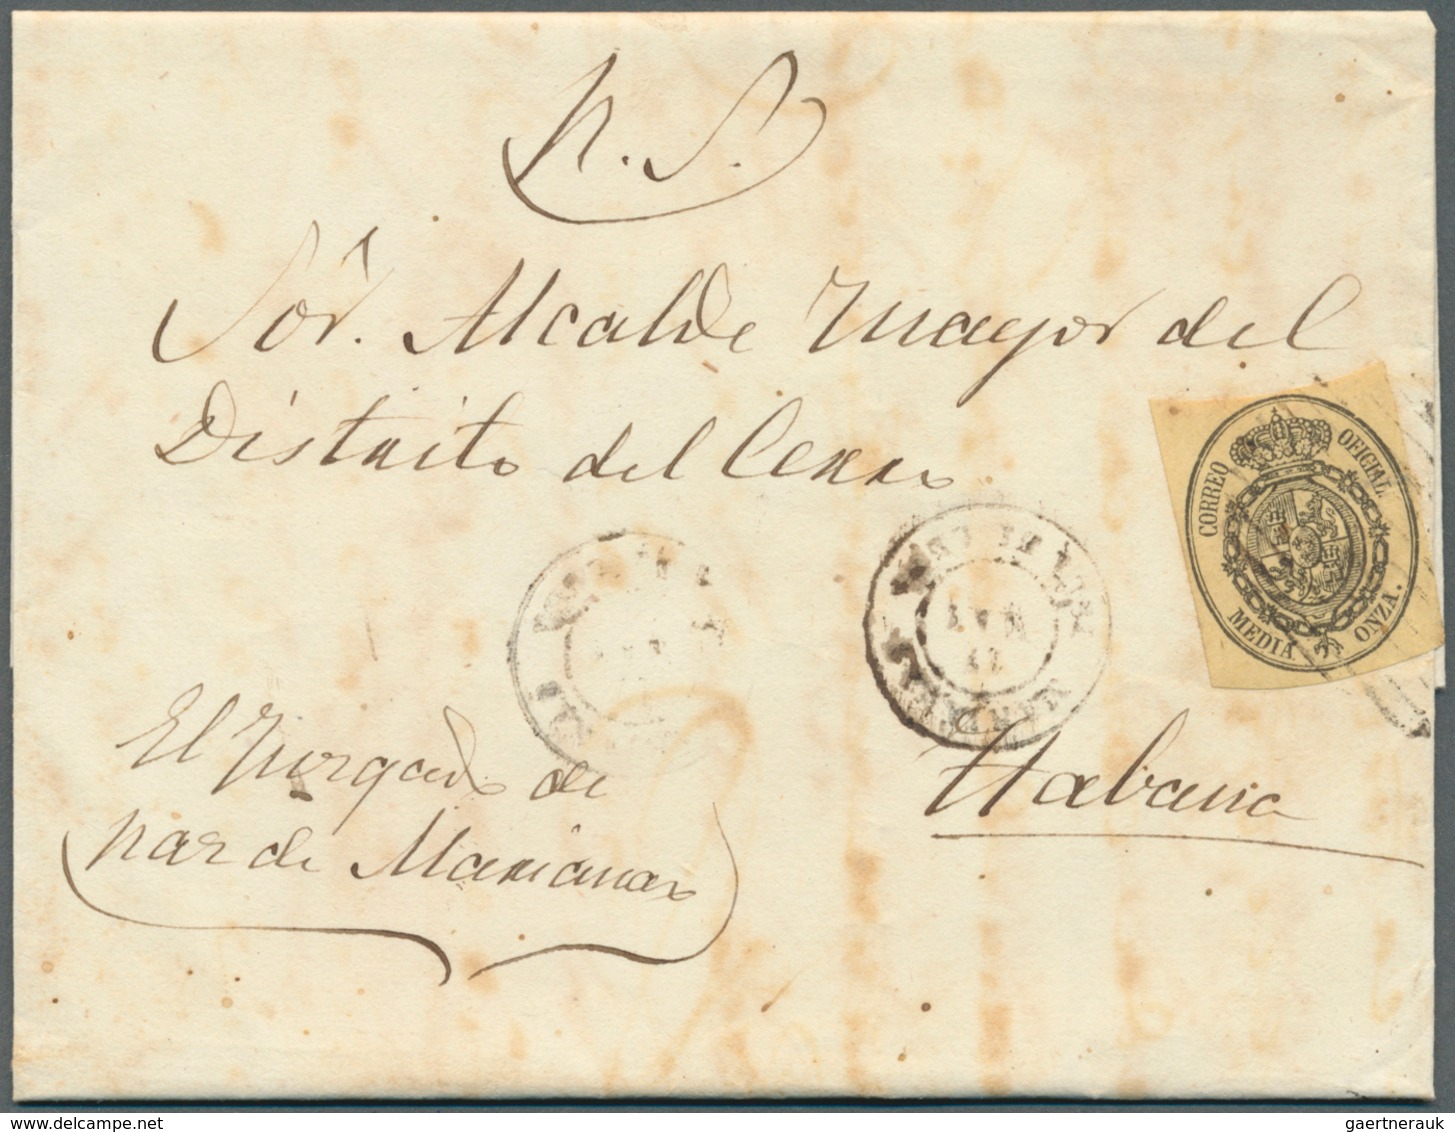 N. S.
Sōr. Alcalde Mayor del
Distrito del Cerro
CORREO OFICIAL
MEDIA ONZA.
El Juzgado de
paz de Marianao
Habana
gaertnerauk